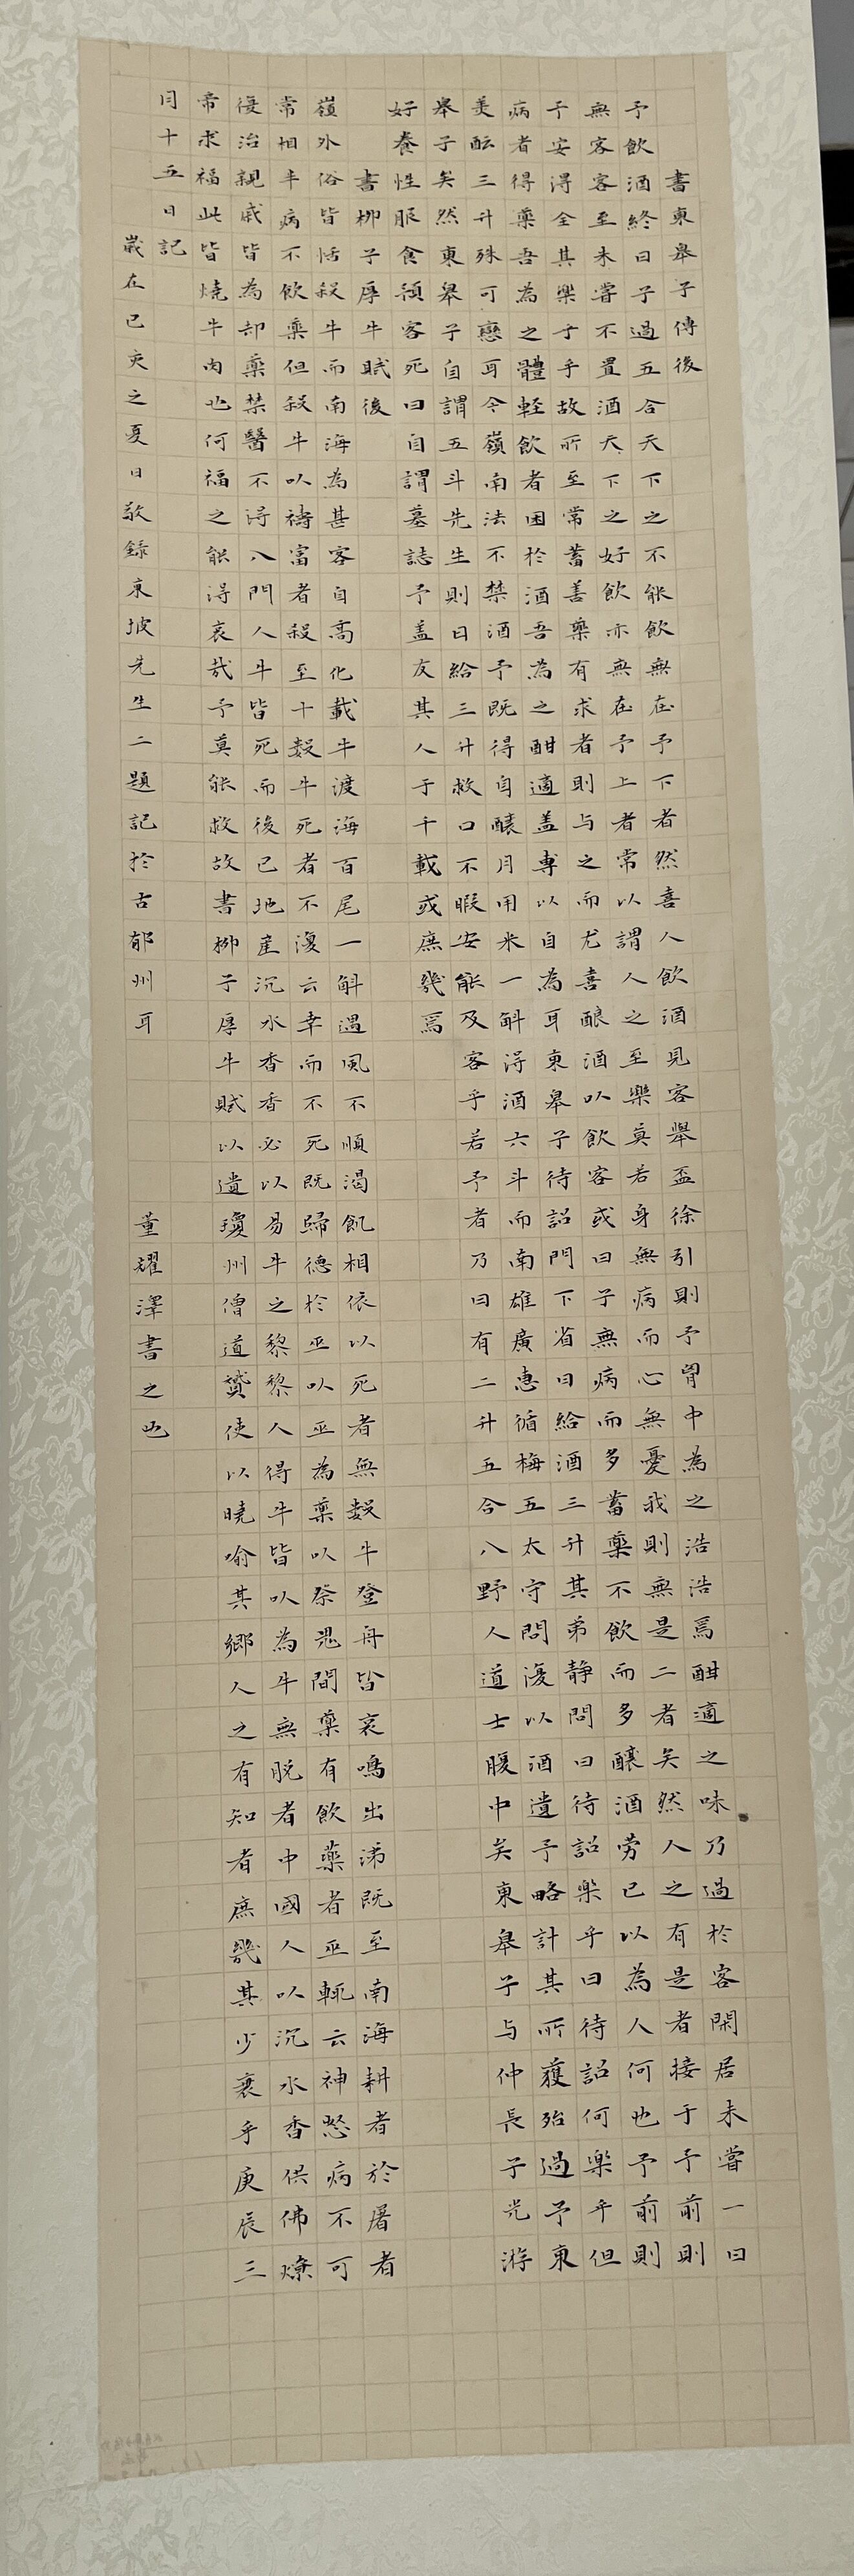 書東臯子傳後
予飲酒終日子過五合天下之不能飲無在予下者然喜人飲酒見客舉盃徐引則予胷中為之浩浩焉酣適之味乃過於客閑居未嘗一日
無客客至未嘗不置酒天下之好飲亦無在予上者常以謂人之至樂莫若身無病而心無憂我則無是二者矣然人之有是者接于予前則
予安得全其樂于乎故所至常蓄善藥有求者則与之而尤喜釀酒以飲客或曰子無病而多蓄藥不飲而多釀酒勞己以為人何也予前則
病者得藥吾為之體輕飲者困於酒吾為之酣適蓋專以自為耳東臯子待詔門下省日給酒三升其弟靜問曰待詔樂乎曰待詔何樂乎但
美醞三升殊可戀耳今嶺南法不禁酒予既得自釀月用米一斛得酒六斗而南雄廣惠循梅五太守問復以酒遺予略計其所獲殆過予東
臯子矣然東臯子自謂五斗先生則日給三升救口不暇安能及客乎若予者乃曰有二升五合入野人道士腹中矣東臯子与仲長子光游
好養性服食預客死曰自謂墓誌予蓋友其人于千載或庶幾焉
書柳子厚牛賦後
嶺外俗皆恬殺牛而南海為甚客自高化載牛渡海百尾一斛遇風不順渴飢相依以死者無數牛登舟皆哀鳴出涕既至南海耕者於屠者
常相半病不飲藥但殺牛以禱富者殺至十數牛死者不復云幸而不死既歸德於巫以巫為藥以祭鬼間藥有飲藥者巫輒云神怒病不可
復治親戚皆為却藥禁醫不得入門人牛皆死而後已地產沉水香香必以易牛之黎黎人得牛皆以為牛無脫者中國人以沉水香供佛燎
帝求福此皆燒牛肉也何福之能得哀哉予莫能救故書柳子厚牛賦以遺瓊州僧道贇使以曉喻其鄉人之有知者庶幾其少衰乎庚辰三
月十五日記
歲在己亥之夏日敬錄東坡先生二題記於古郁州耳 董耀澤書之也